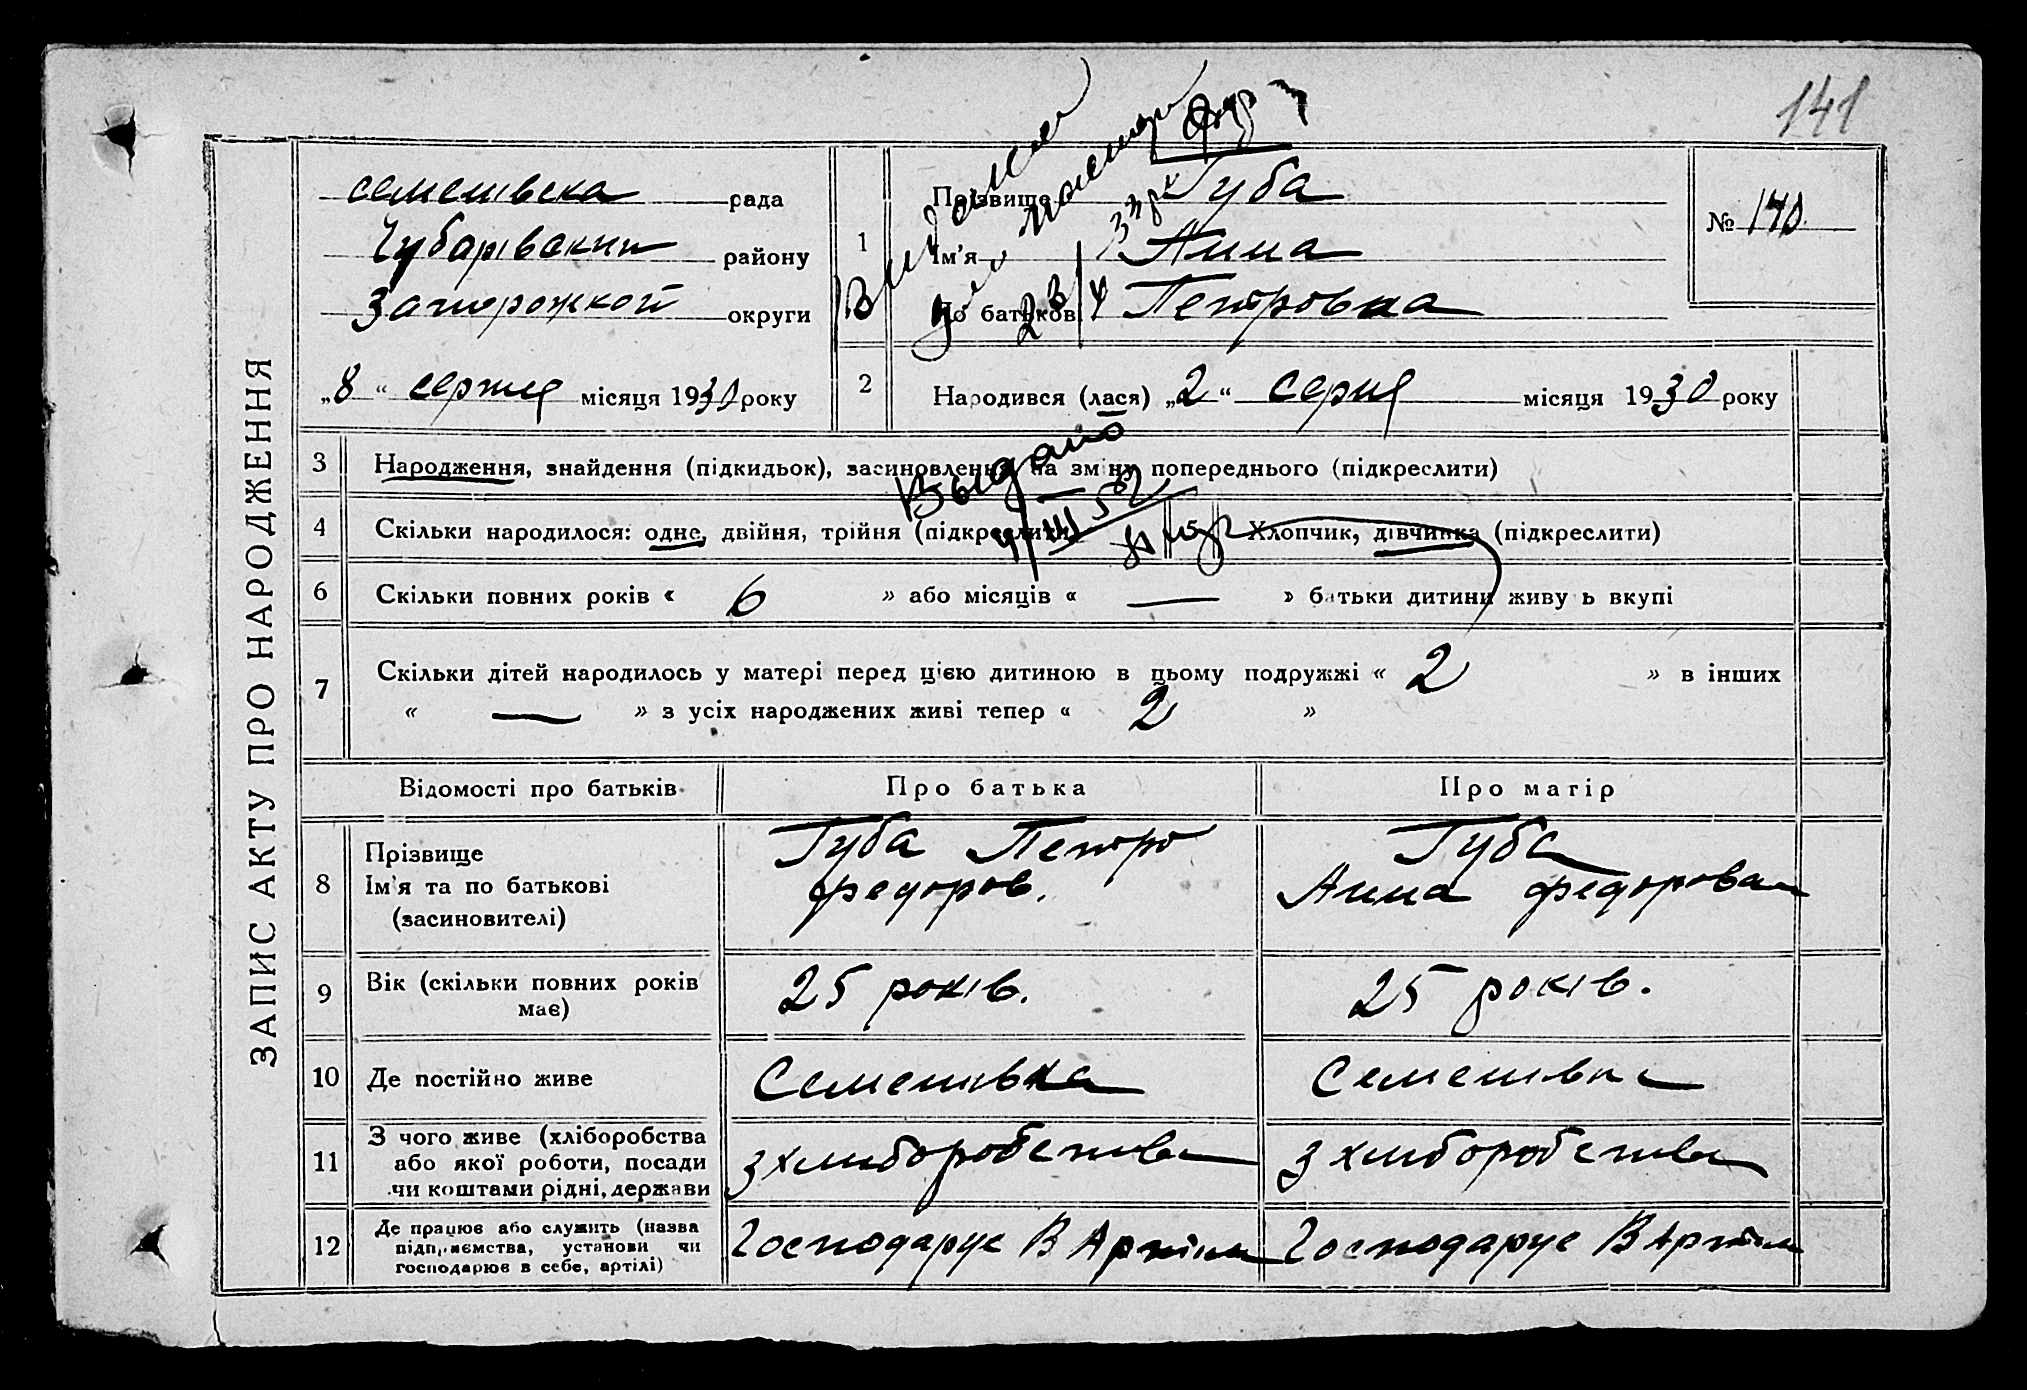 141
ЗАПИС АКТУ ПРО НАРОДЖЕННЯ
Семенівська рада
Чубарівский району
Запорожкой округи
„8“ серпня місяця 1930 року
1
Прізвище Губа
Ім'я Анна
По батькові Петровна
№ 140
2
Народився (лася) „2“ серпя місяця 1930 року
3 Народження, знайдення (підкидьок), засиновлення, на зміну попереднього (підкреслити)
Выдано
4 Скільки народилося: одне, двійня, трійня (підкреслити)
5 Хлопчик, дівчинка (підкреслити)
6 Скільки повних років « 6 » або місяців « — » батьки дитини живуть вкупі
7 Скільки дітей народилось у матері перед цією дитиною в цьому подружжі « 2 » в інших
« — » з усіх народжених живі тепер « 2 »
Відомості про батьків Про батька Про матір
8 Прізвище
Ім'я та по батькові
(засиновителі)
Губа Петро
Федоров.
Губа
Анна Федоровна
9 Вік (скільки повних років
має)
25 років.
25 років.
10 Де постійно живе Семенивка Семенивка
11 З чого живе (хліборобства
або якої роботи, посади
чи коштами рідні, держави
з хлиборобства
з хлиборобства
12 Де працює або служить (назва
підприємства, установи чи
господарює в себе, артілі)
Господарує В Артіли
Господарує В Артіли